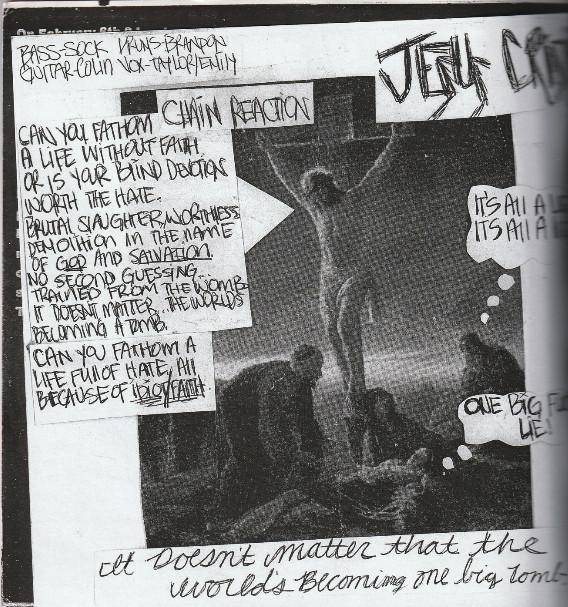 BASS-SOCK DRUMS-BRANDON
GUITAR-COLIN VOX-TAYLOR/EMILY
CHAIN REACTION
CAN YOU FATHOM
A LIFE WITHOUT FAITH
OR IS YOUR BLIND DEVOTION
WORTH THE HATE.
BRUTAL SLAUGHTER, WORTHLESS
DEMOLITION IN THE NAME
OF GOD AND SALVATION.
NO SECOND GUESSING...
TRAINED FROM THE WOMB
IT DOESN'T MATTER.. THE WORLDS
BECOMING A TOMB.
CAN YOU FATHOM A
LIFE FULL OF HATE, All
BECAUSE OF IDIOT FAITH
IT'S All A
ITS All A
ONE BIG
LIE!
It Doesn't matter that the
world's Becoming one big tomb-